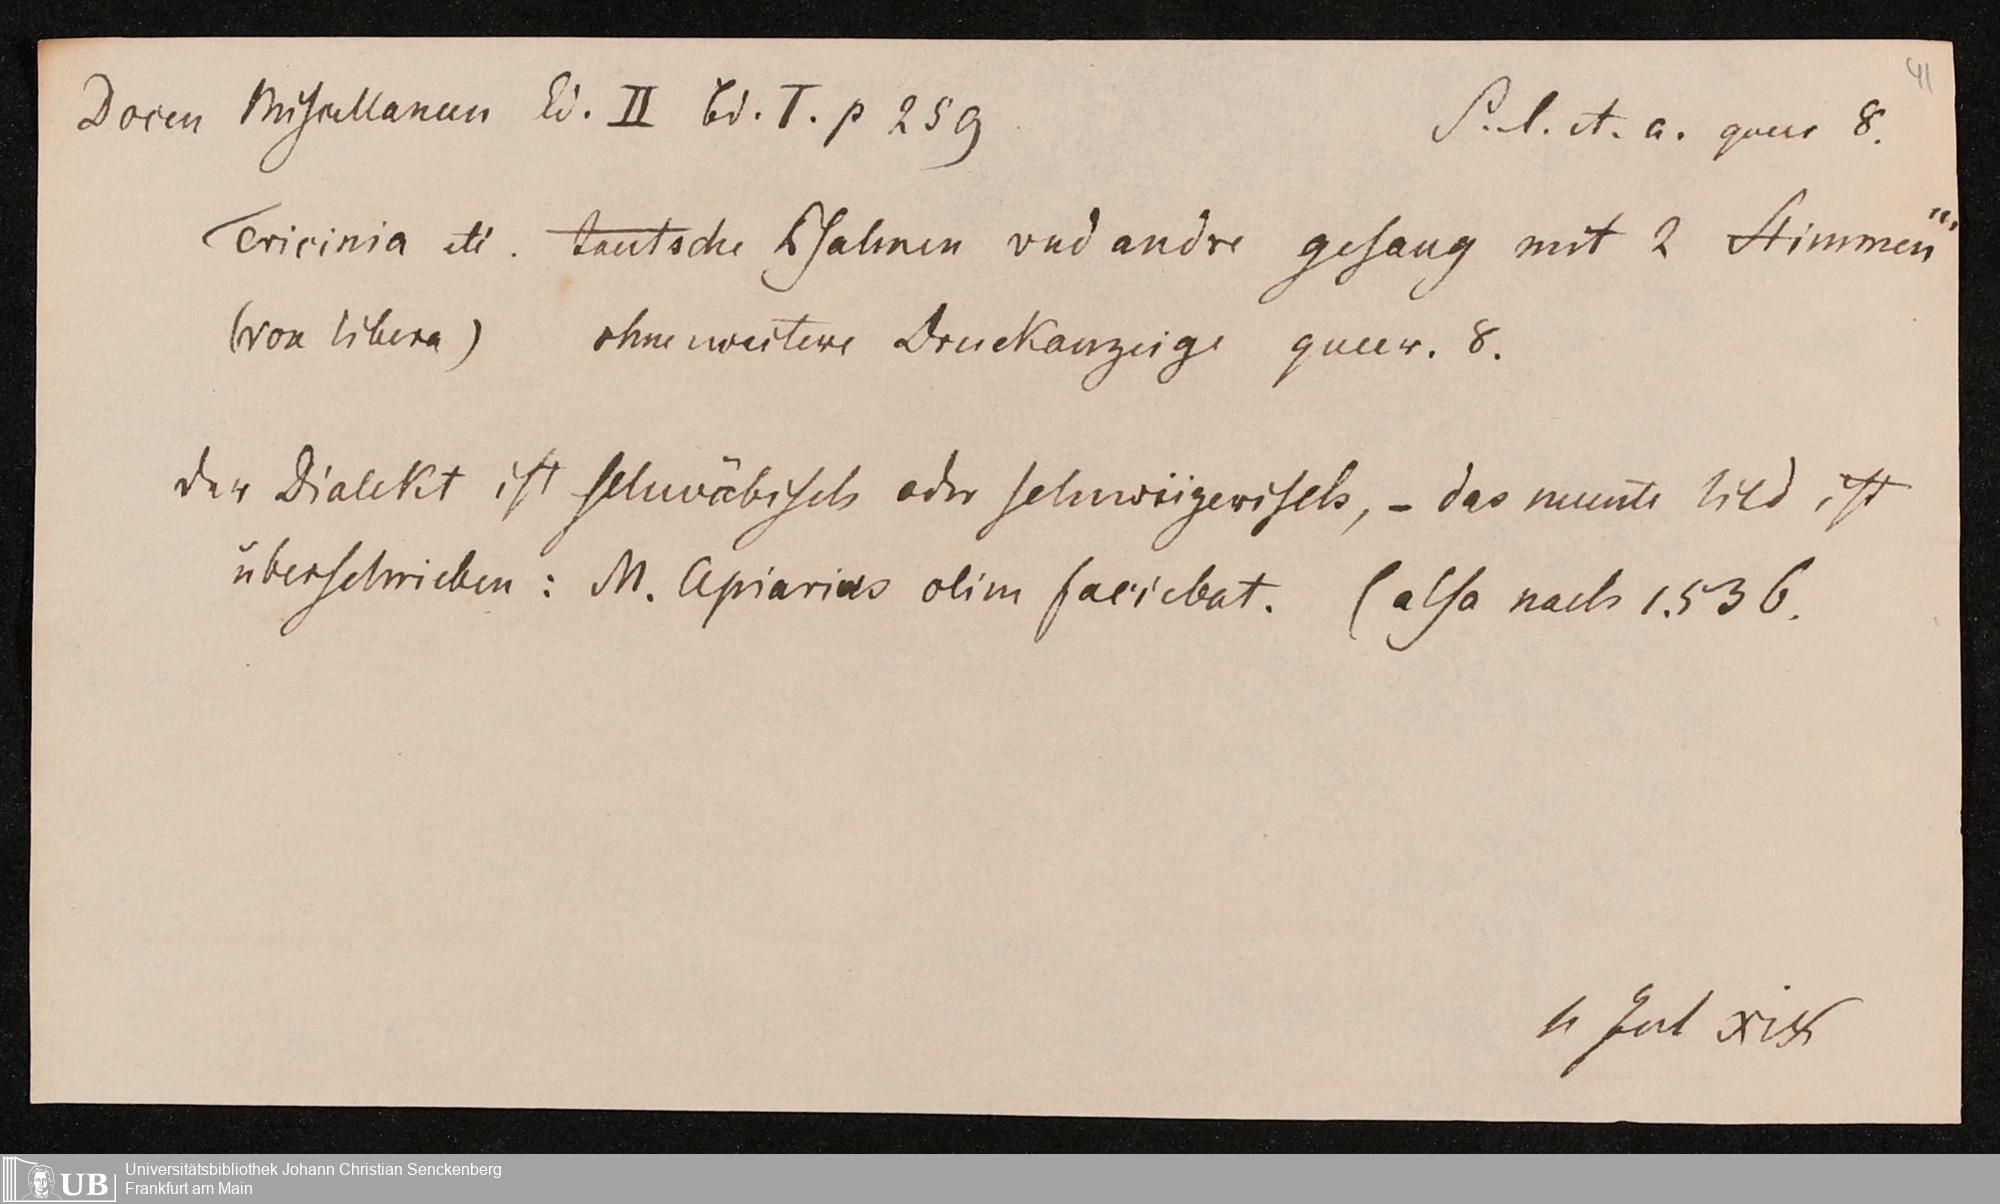 41
Docen Miscellaneen Ed. II Bd. I. p 259 S. l. et. a. queer 8.
Tricinia etc. teutsche Psalmen vnd andre gesang mit 2 Stimmen"
(von libera) ohne weitere Druckanzeige queer. 8.
der Dialekt ist schwäbisch oder schweizerisch, - das neunte Lied ist
überschrieben: M. Apiarius olim faciebat. (also nach 1536.
Universitätsbibliothek Johann Christian Senckenberg
UB Frankfurt am Main